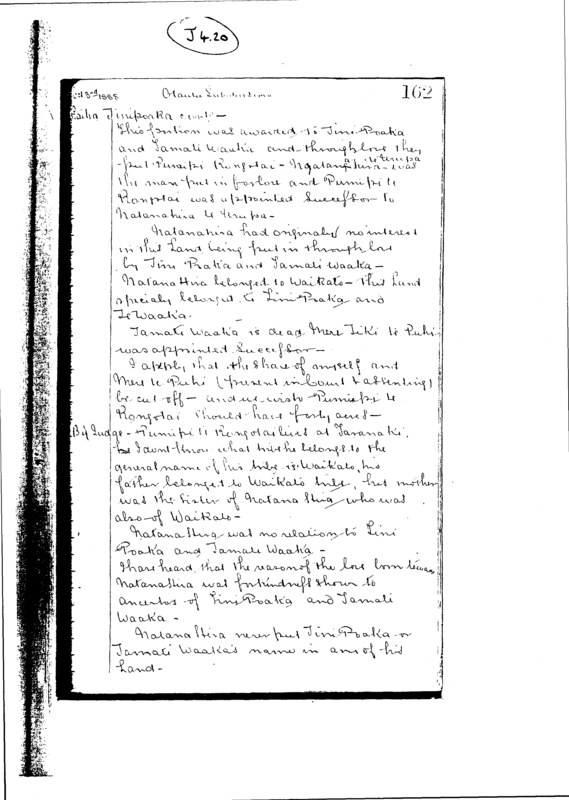 J 4.20
3rd 1888 Otautu Subdivisions 162
Tini Poaka cont -
This portion was awarded to Tini Poaka
and Tamati Waaka and through love they
put Pumipi Kongotai - Ngatanahira te Terupa was
the man put in for love and Pumipi te
Kongotai was appointed Successor to
Natanahira te Terupa -
Natanahira had originally no interest
in this Land being put in through love
by Tini Poaka and Tamati Waaka -
Natanahira belonged to Waikato - this Land
specially belonged to Tini Poaka and
T. Waaka -
Tamati Waaka is dead Mere Tiki te Puhi
was appointed Successor -
I apply that the share of myself and
Mere te Puhi (present in Court & assenting)
be cut off - and we wish Pumipi te
Kongotai should have forty acres -
By Judge - Pumipi te Kongotai lives at Taranaki,
I dont know what tribe he belongs to the
general name of his tribe is Waikato, his
father belonged to Waikato tribe, his mother
was the sister of Natanahira who was
also of Waikato -
Natanahira was no relation to Tini
Poaka and Tamati Waaka -
I have heard that the reason of the love born towards
Natanahira was for kindness shown to
ancestors of Tini Poaka and Tamati
Waaka -
Natanahira never put Tini Poaka or
Tamati Waaka's name in any of his
Land -